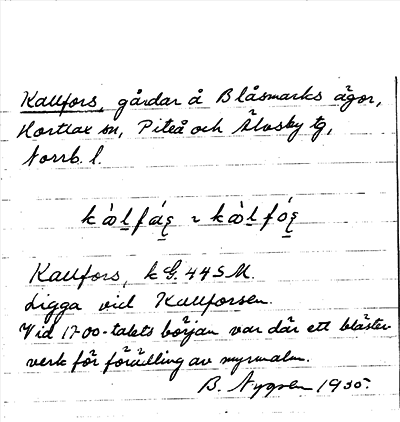 Kallfors, gårdar å Blåsmarks ägor,
Hortlax sn, Piteå och Älvsby tg,
Norrb. l.
Kallfors, k G. 445 M.
Ligga vid Kallforsen.
Vid 1700-talets början var där ett bläster
verk för förädling av myrmalm.
B. Nygren 1935.